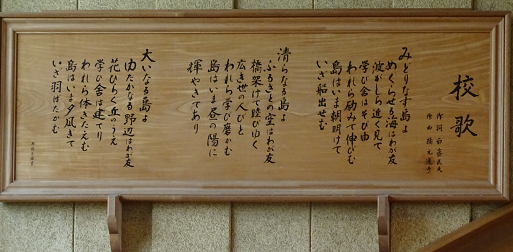 校歌
みどりなす島よ
めぐらせる海はわが友
波がしら遠く見て
学び舎はその由
われら励みて伸びむ
島はいま朝明けて
いざ船出せむ
清らなる島よ
ふるさとの空はわが友
橋架けて睦びゆく
広き世の人びと
われら学び磨かむ
島はいま昼の陽に
輝やきてあり
大いなる島よ
ゆたかなる野辺はわが友
花ひらく丘のうえ
学び舎は建てり
われら体きたえむ
島はいま夕凪ぎて
いざ羽ばたかむ